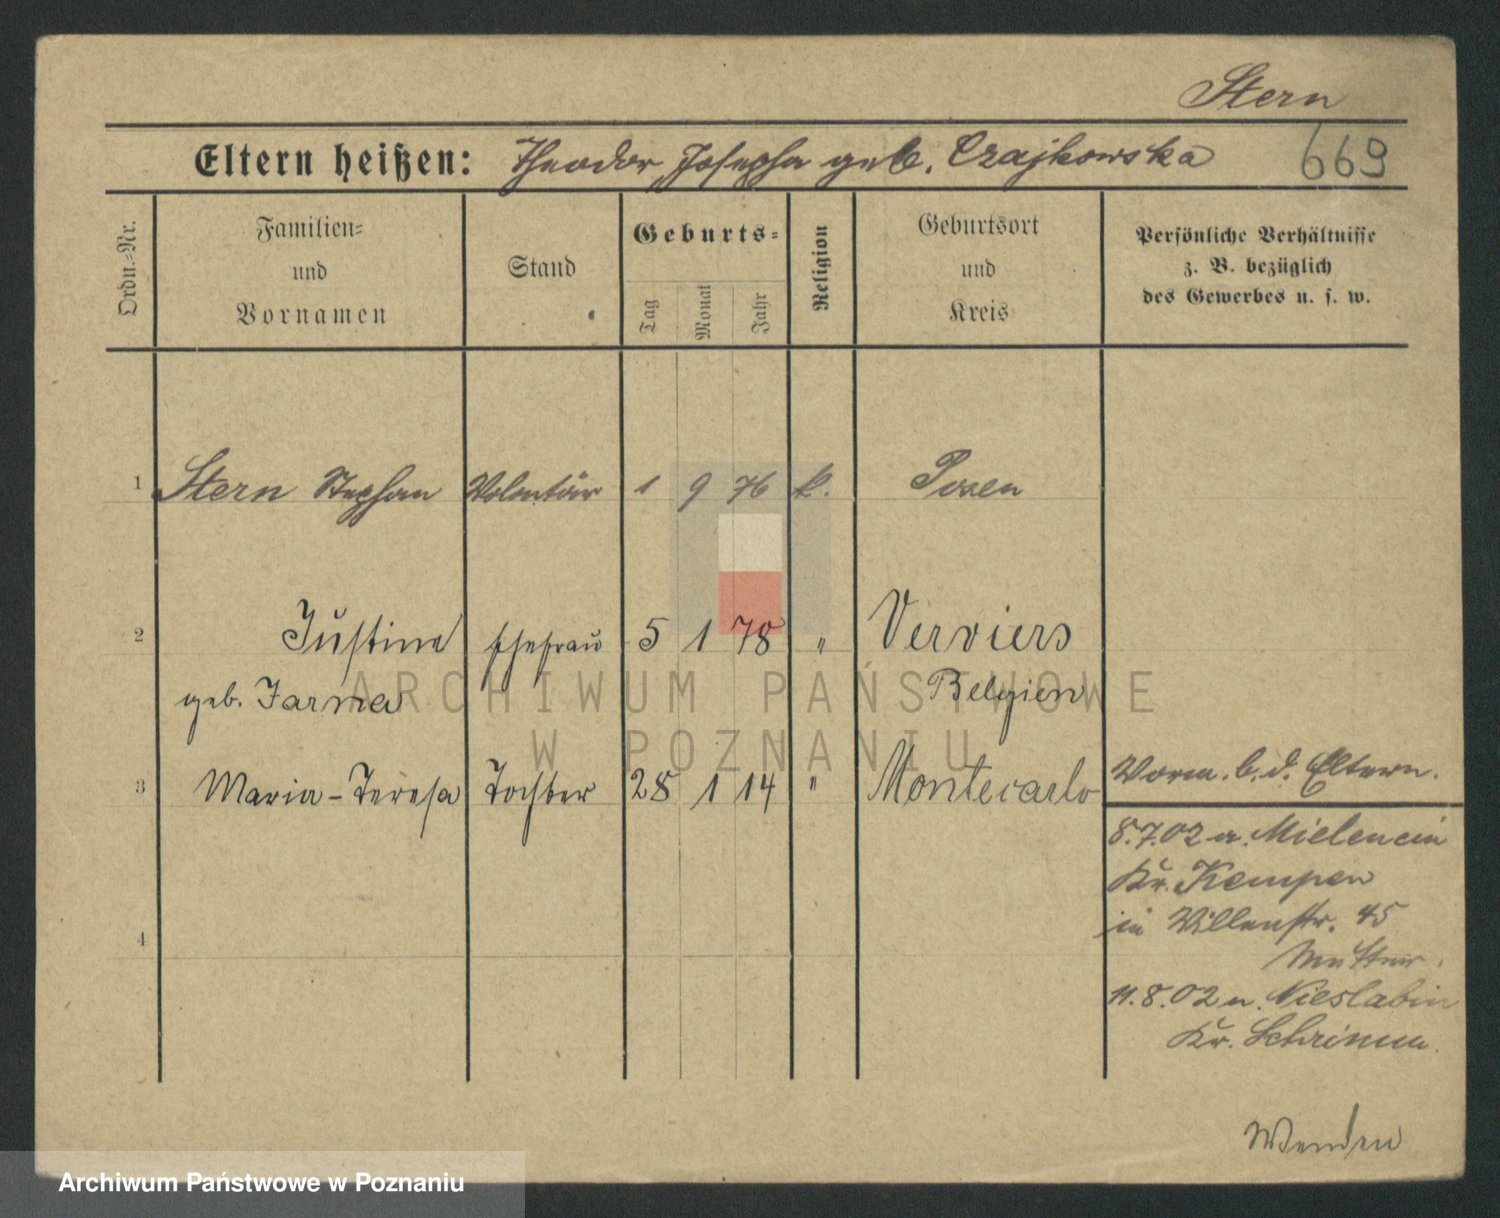 Stern
Eltern heißen: Theodor, Josepha geb. Czajkowska
669
Ordn.-Nr.
Familien-
und
Vornamen
Stand
Geburts-
Tag
Monat
Jahr
Religion
Geburtsort
und
Kreis
Persönliche Verhältnisse
z. B. bezüglich
des Gewerbes u. s. w.
1 Stern Stephan Volontär 1 9 76 k. Posen
2 Justine Ehefrau 5 1 78 " Verviers
geb. Jarma Belgien
ARCHIWUM PAŃSTWOWE
W POZNANIU
3 Maria-Teresa Tochter 28 1 14 " Montecarlo
4
Vorm. b. d. Eltern.
8.7.02 n. Mielencin
Kr. Kempen
in Villenstr. 45
11.8.02 n. Nieslabin
Kr. Schrimm.
Wenden
Archiwum Państwowe w Poznaniu